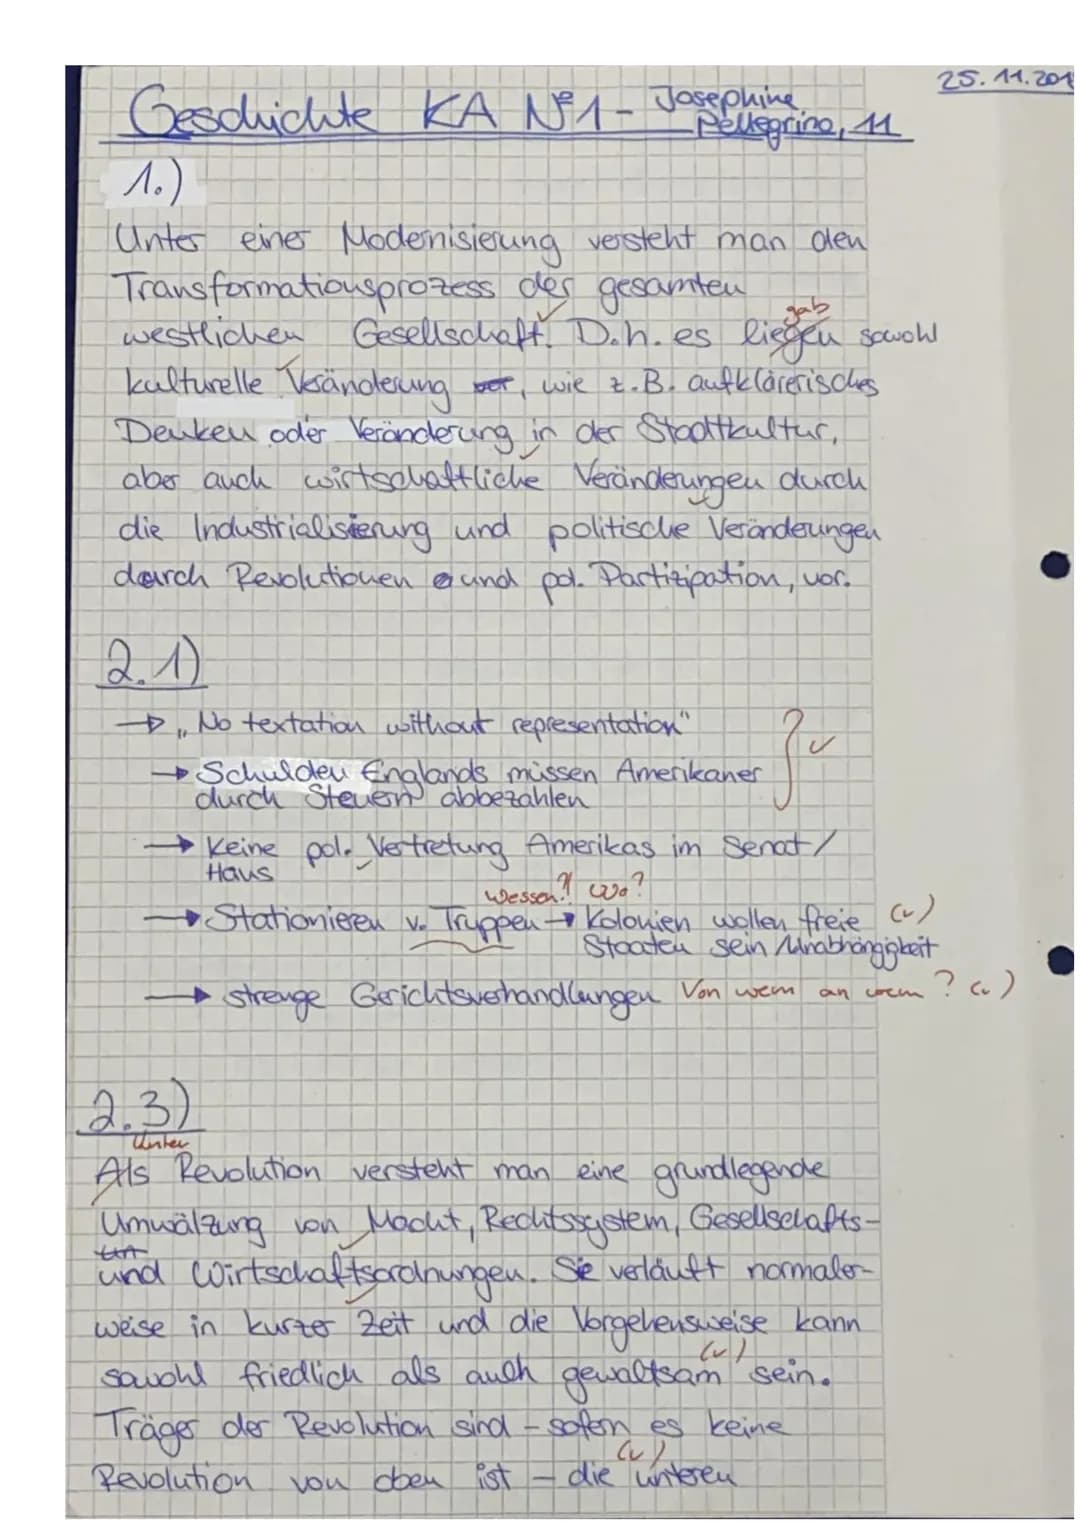 25.11.201
Geschichte KA Nº1 - Josephine
Pellegrino, 11
1.)
Unter einer Modernisierung versteht man den
Transformationsprozess der gesamten
gab
westlichen Gesellschaft. D.h. es liegen sowohl
kulturelle Veränderung vor, wie z.B. aufklärerisches
Denken oder Veränderung in der Stadtkultur,
aber auch wirtschaftliche Veränderungen durch
die Industrialisierung und politische Veränderungen
durch Revolutionen und pol. Partizipation, vor.
2.1)
→ „No textation without representation"
→ Schulden Englands müssen Amerikaner
durch Steuern abbezahlen
→ Keine pol. Vertretung Amerikas im Senat/
Haus
Wessen? Wo?
→ Stationieren v. Truppen → Kolonien wollen freie (v)
Staaten sein/Unabhängigkeit
→ strenge Gerichtsverhandlungen Von wem an wem? (v)
2.3)
Unter
Als Revolution versteht man eine grundlegende
Umwälzung von Macht, Rechtssystem, Gesellschafts-
und Wirtschaftsordnungen. Sie verläuft normaler-
weise in kurzer Zeit und die Vorgehensweise kann
(v)
sowohl friedlich als auch gewaltsam sein.
Träger der Revolution sind - sofern es keine
(v)
Revolution von oben ist - die unteren